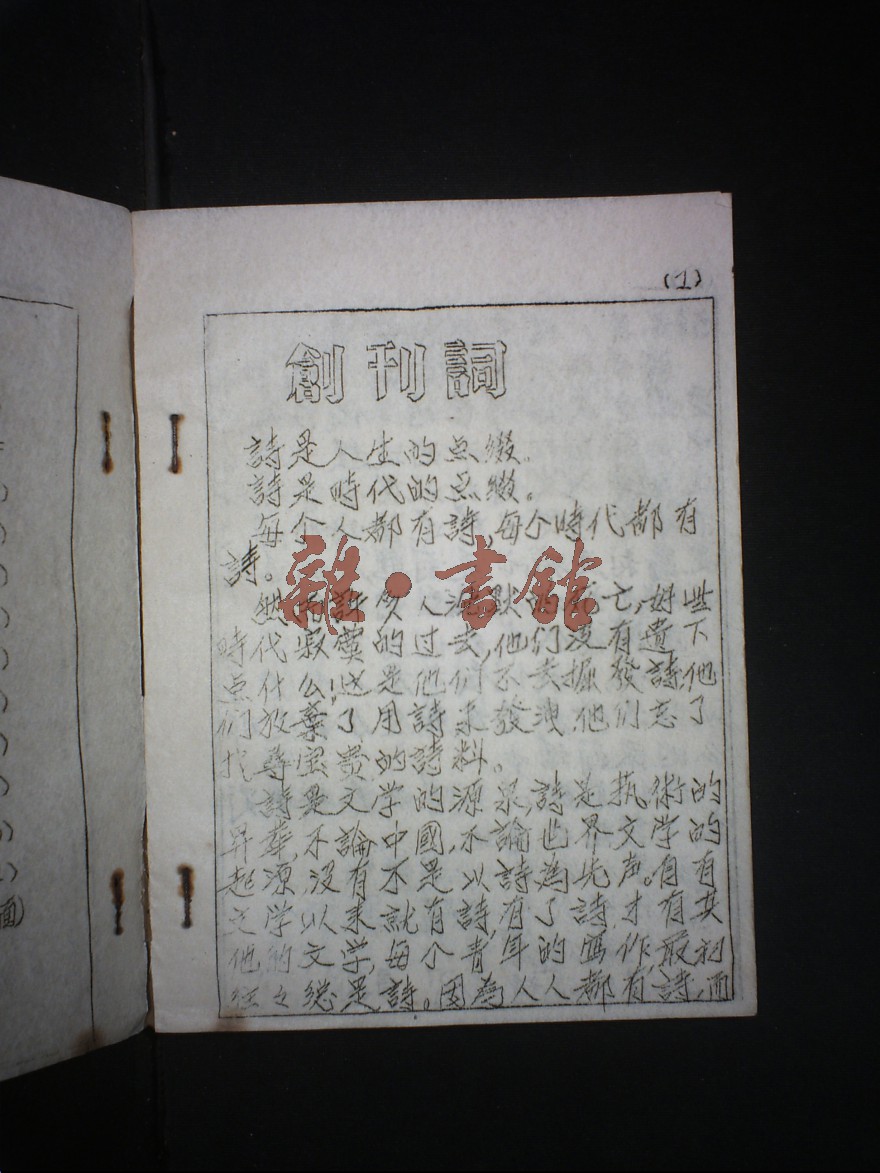 (1)
創刊詞
詩是人生的点缀。
詩是時代的点缀。
每个人都有詩,每个時代都有
詩。
然而許多人沉默的死亡,好些
時代寂寞的过去,他们没有遺下
点什么!这是他们不去掘發詩,他
们放棄了用詩来發洩,他们忘了
找尋宝贵的詩料。
詩是文学的源泉,詩是执術的
昇華,不論中國,不論世界,文学的
起源,没有不是以詩為先声。有
文学以来就有詩,有了詩,才有其
他的文学,每个青年的寫作,最初
往々总是詩。因為人人都有詩,而
面)
雜·書館